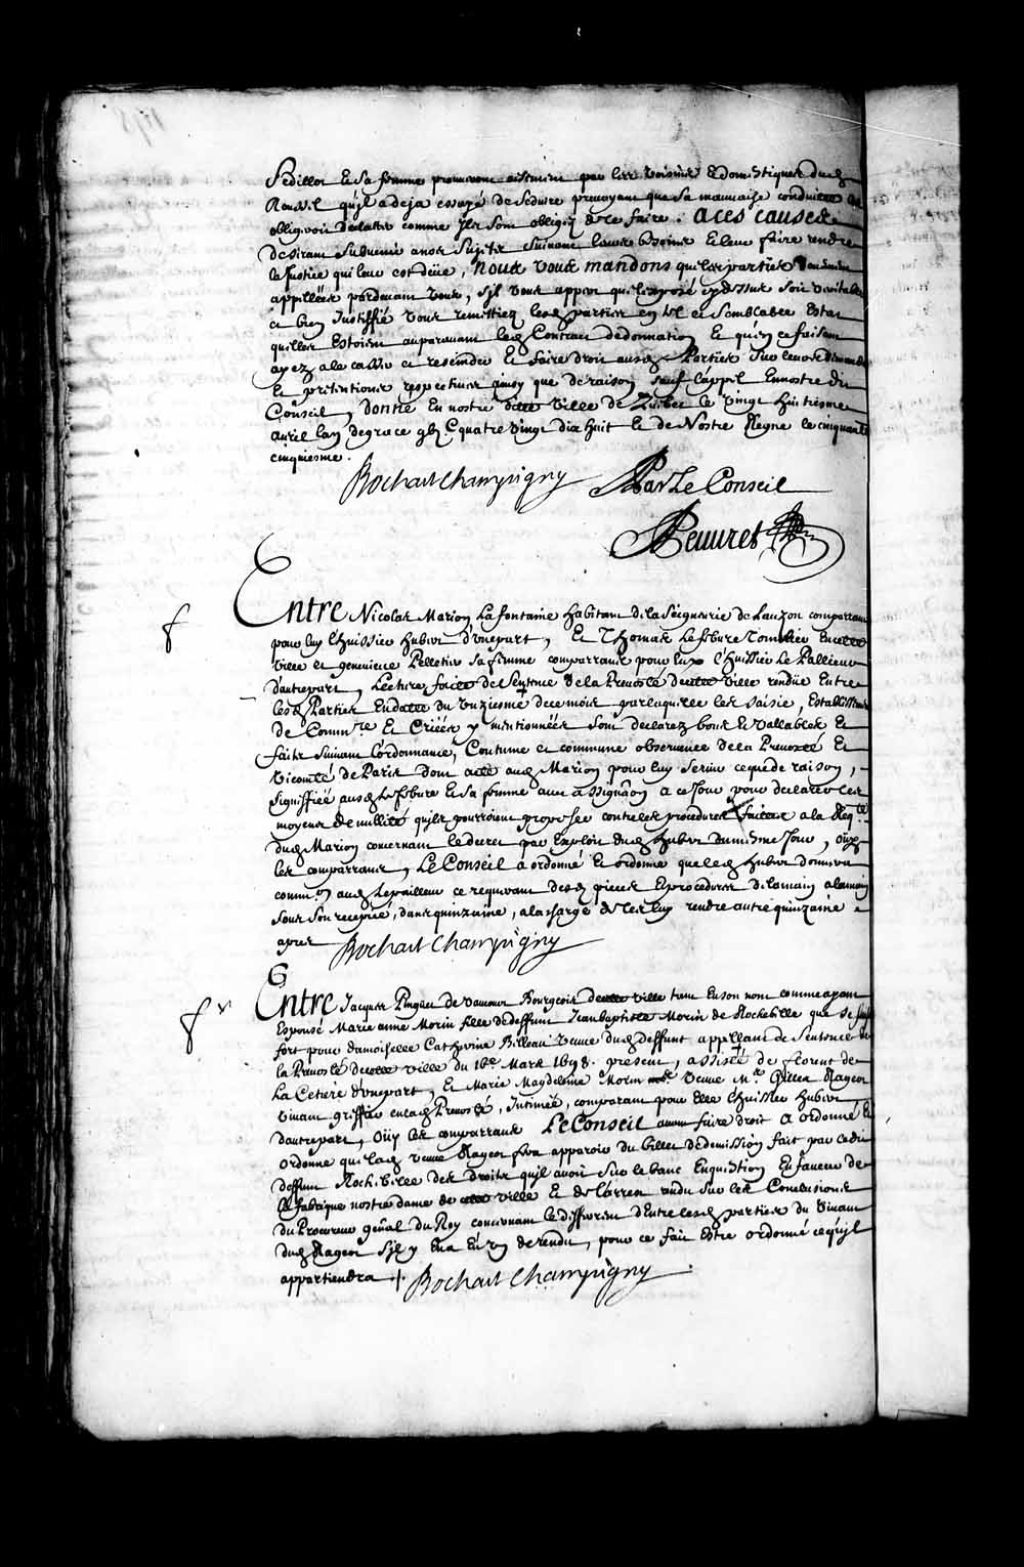 Sedillot Et Sa femme prouveront aisement par les voisins Et domestiques dud
Roussel quil a deja essayé de Seduire prevoyant que Sa mauvaise conduitte
obligeroit comme Ils Sont obligez de le faire. A CES CAUSES
desirant Subvenir a nos Sujets Suivant leurs besoins Et leur faire rendre
la Justice qui leur est deüe, Nous vous mandons que les parties
appellées pardevant vous, Sil vous appert que l'exposé cy dessus Soit veritable
ce bien Justiffié vous remettiez lesd parties en tel et Semblable Estat
quelles Estoient auparavant led Contract de donnation Et quen ce faisant
ayez a le casser et rescinder Et faire droit ausd Parties Sur leurs demandes
Et pretentions respectives ainsy que de raison Sauf l'appel En nostre dit
Conseil, donné En nostre ditte ville de Quebec le vingt huitiesme
avril lan de grace gbj C quatre vingt dix huit Et de Nostre Regne le cinquante
cinquiesme.
Bochart Champigny Par Le Conseil
Peuuret
Entre Nicolas Marion La fontaine habitant de la Seigneurie de Lauzon comparant
pour luy l'huissier hubert d'une part, Et Thomas Lefebure Tonnelier En cette
Ville et genevieve Pelletier Sa femme comparants pour Eux l'huissier Le Pallieur
d'autre part, Lecture faitte de Sentence de la Prevosté de cette ville rendüe Entre
lesd Parties En datte du unziesme de ce mois par laquelle les Saisie, Establissement
de Commre Et Criées y mentionnées Sont declarez bons Et vallables Et
faits Suivant l'ordonnance, Coutume et commune observance de la Prevosté Et
Vicomté de Paris dont acte aud Marion pour luy Servir ce que de raison,
Signiffiée ausd Lefebure Et Sa femme avec assignaõn a ce Jour pour declarer les
moyens de nullité quils pourroient proposer contre les procedures faittes a la Reqte
dud Marion concernant le decret par Exploit dud hubert du mesme Jour, oüys
les comparans, Le Conseil a ordonné Et ordonne que led hubert donnera
comm.on aud Lepailleur ce requerant desd pieces Et procedures de la main a la main
Sous Son recepicé, dans quinzaine, a la charge de les luy rendre autre quinzaine
apres Bochart Champigny
G
Entre Jacques Pinguet de vaucour Bourgeois de cette ville tant En son nom comme ayant
Espousé Marie anne Morin fille de deffunt Jean baptiste Morin de Rochebelle que Se faisant
fort pour damoiselle Catherine Billeau veuve dud deffunt appellant de Sentence de
la Prevosté de cette ville du 18e Mars 1698. present, assisté de florent de
La Cetiere d'une part, Et Marie Magdelaine Morin veuve Me Gilles Rageot
vivant greffier en lad Prevosté, Intimée, comparant pour Elle l'huissier hubert
d'autre part, Oüy les comparans Le Conseil avant faire droit a ordonné Et
ordonne que lad veuve Rageot fera apparoir du billet de demission fait par ledit
deffunt Rochebelle des droits quil avoit Sur le banc En question En faveur de
la fabrique nostre dame de cette ville Et de l'arrest rendu Sur les Conclusions
du Procureur general du Roy concernant le different d'Entre lesd parties du vivant
dud Rageot Sil y En a Eu un de rendu, pour ce fait Estre ordonné ce quil
appartiendra Bochart Champigny.